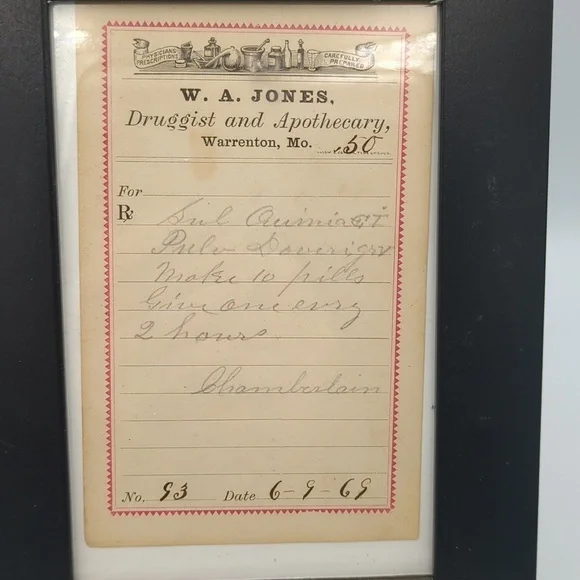 PHYSICIANS PRESCRIPTIONS CAREFULLY PREPARED
W. A. JONES,
Druggist and Apothecary,
Warrenton, Mo. .50
For
℞ Sul Quinia
Pulv Doveri grv
Make 10 pills
Give one evry
2 hours
Chamberlain
No. 93 Date 6-9-69